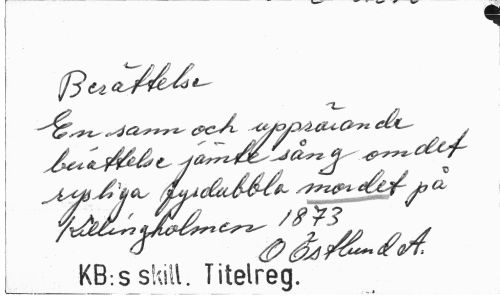 Berättelse
En sann och upprörande
berättelse jämte sång om det
rysliga fyrdubbla mordet på
Killingholmen 1873
O Östlund A.
KB:s skill. Titelreg.